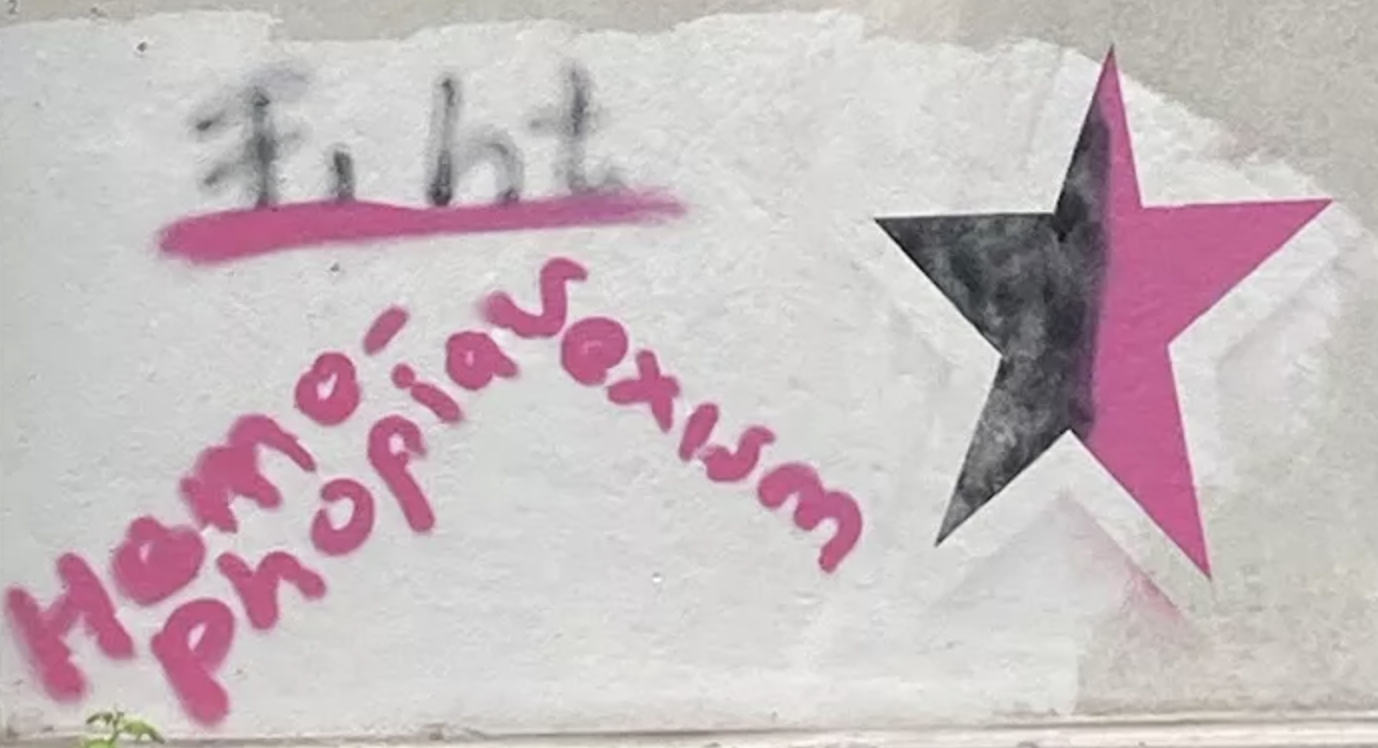 Fiht
Homo-
phopia sexism